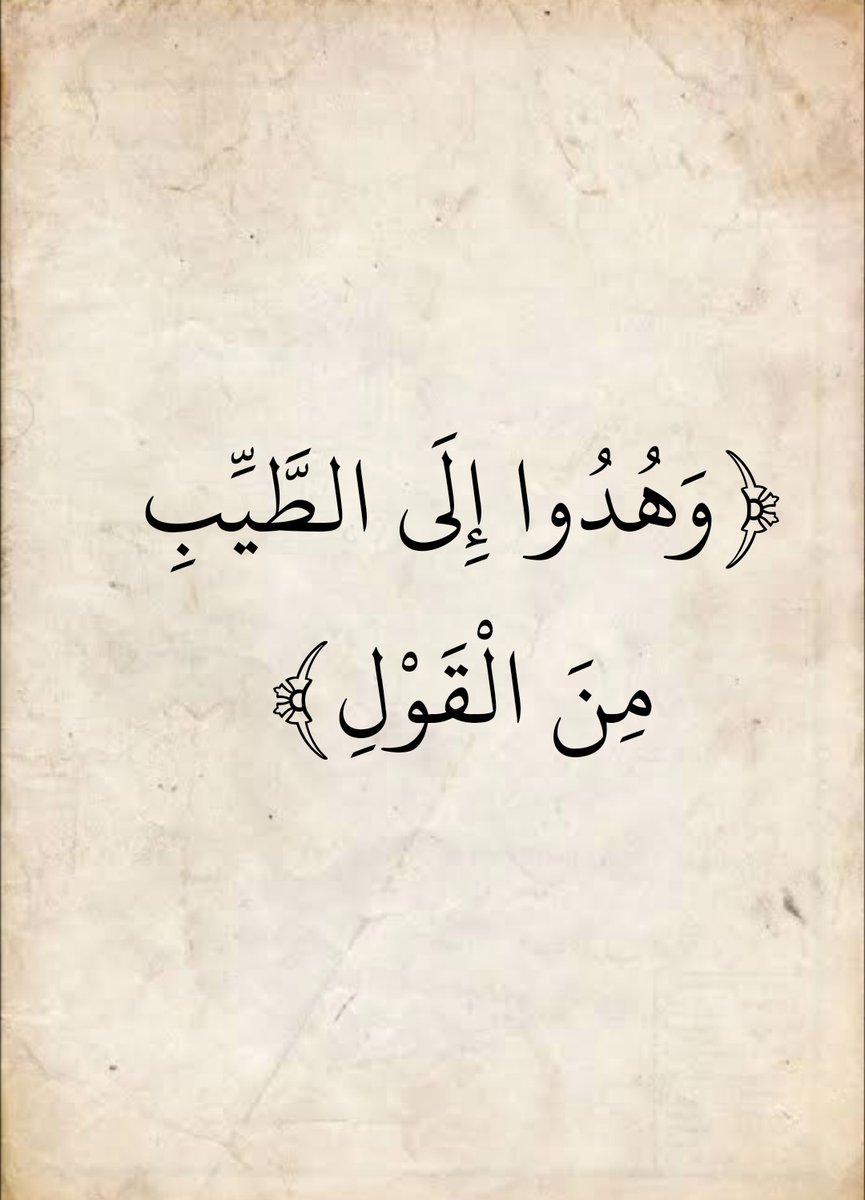 ﴿وَهُدُوا إِلَى الطَّيِّبِ
مِنَ الْقَوْلِ﴾